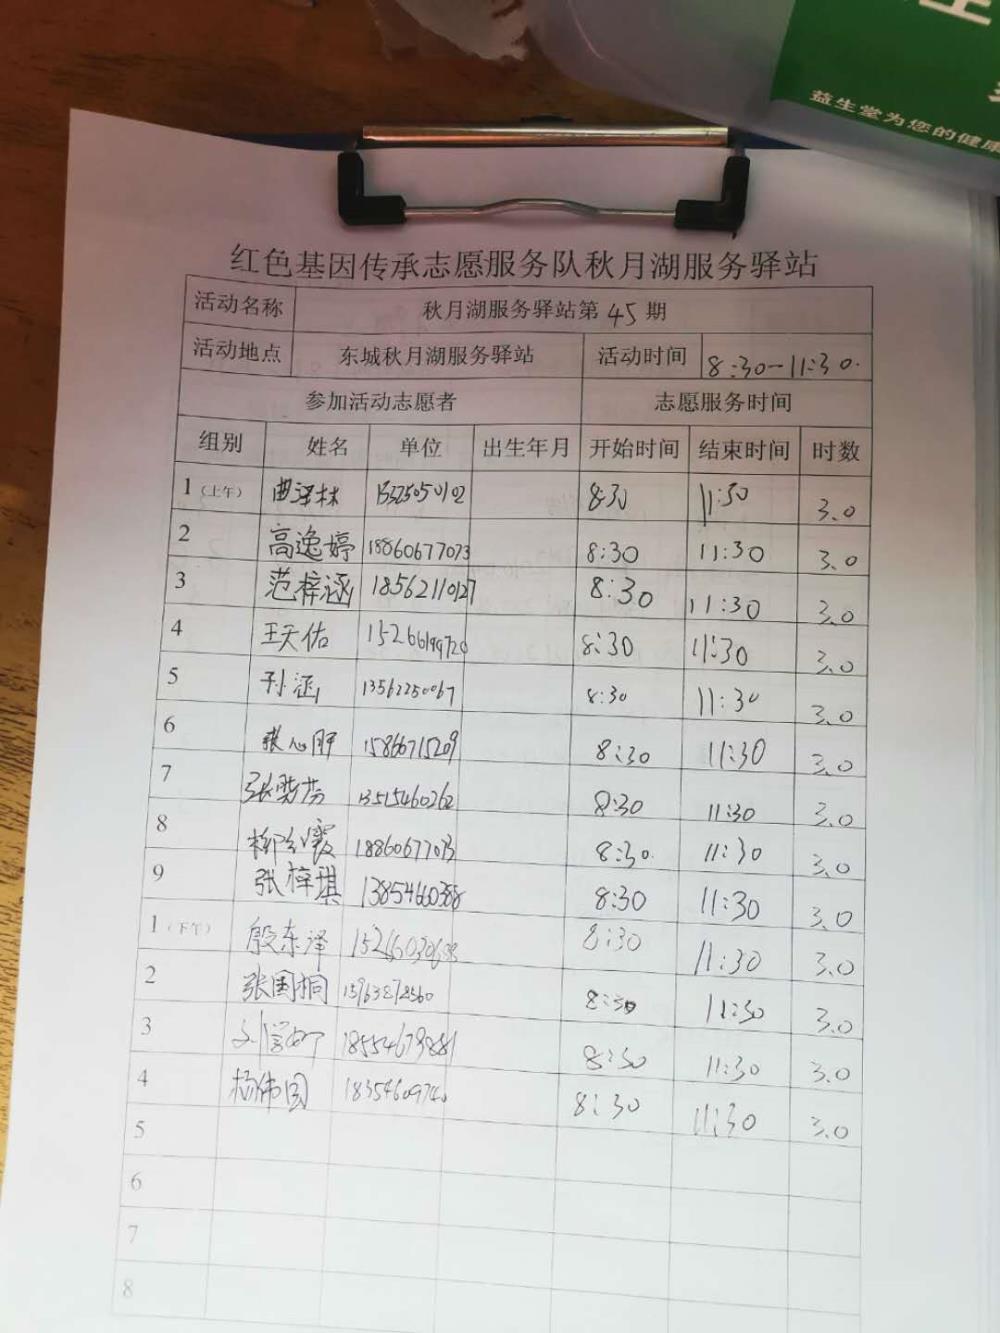 益生堂为您的健康
红色基因传承志愿服务队秋月湖服务驿站
活动名称 秋月湖服务驿站第45期
活动地点 东城秋月湖服务驿站 活动时间 8:30-11:30.
参加活动志愿者 志愿服务时间
组别 姓名 单位 出生年月 开始时间 结束时间 时数
1（上午） 曲泽林 8:30 11:30 3.0
2 高逸婷 18860677073 8:30 11:30 3.0
3 范梓涵 18562110127 8:30 11:30 3.0
4 王天佑 8:30 11:30 3.0
5 孙涵 13562250067 8:30 11:30 3.0
6 15866715209 8:30 11:30 3.0
7 13515460262 8:30 11:30 3.0
8 柳红霞 18860677073 8:30. 11:30 3.0
9 张梓琪 13854660388 8:30 11:30 3.0
1（下午） 殷东泽 8:30 11:30 3.0
2 张国桐 8:30 11:30 3.0
3 18554679881 8:30 11:30 3.0
4 杨伟国 8:30 11:30 3.0
5
6
7
8